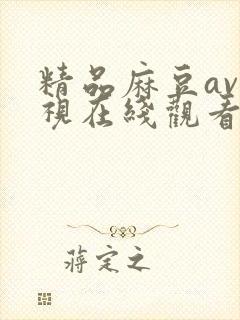 精品麻豆av
視在綫觀看
蔣定之